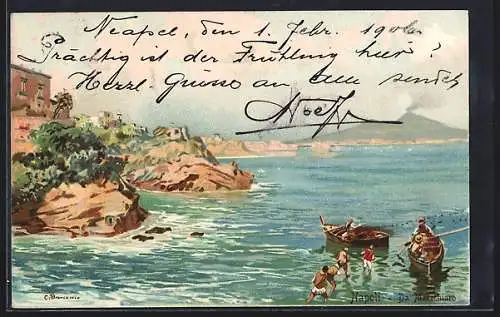 Neapel, den 1. Febr. 190
Prächtig ist der Frühling hier!
Herzl. Grüsse an alle sendet
Napoli - Da